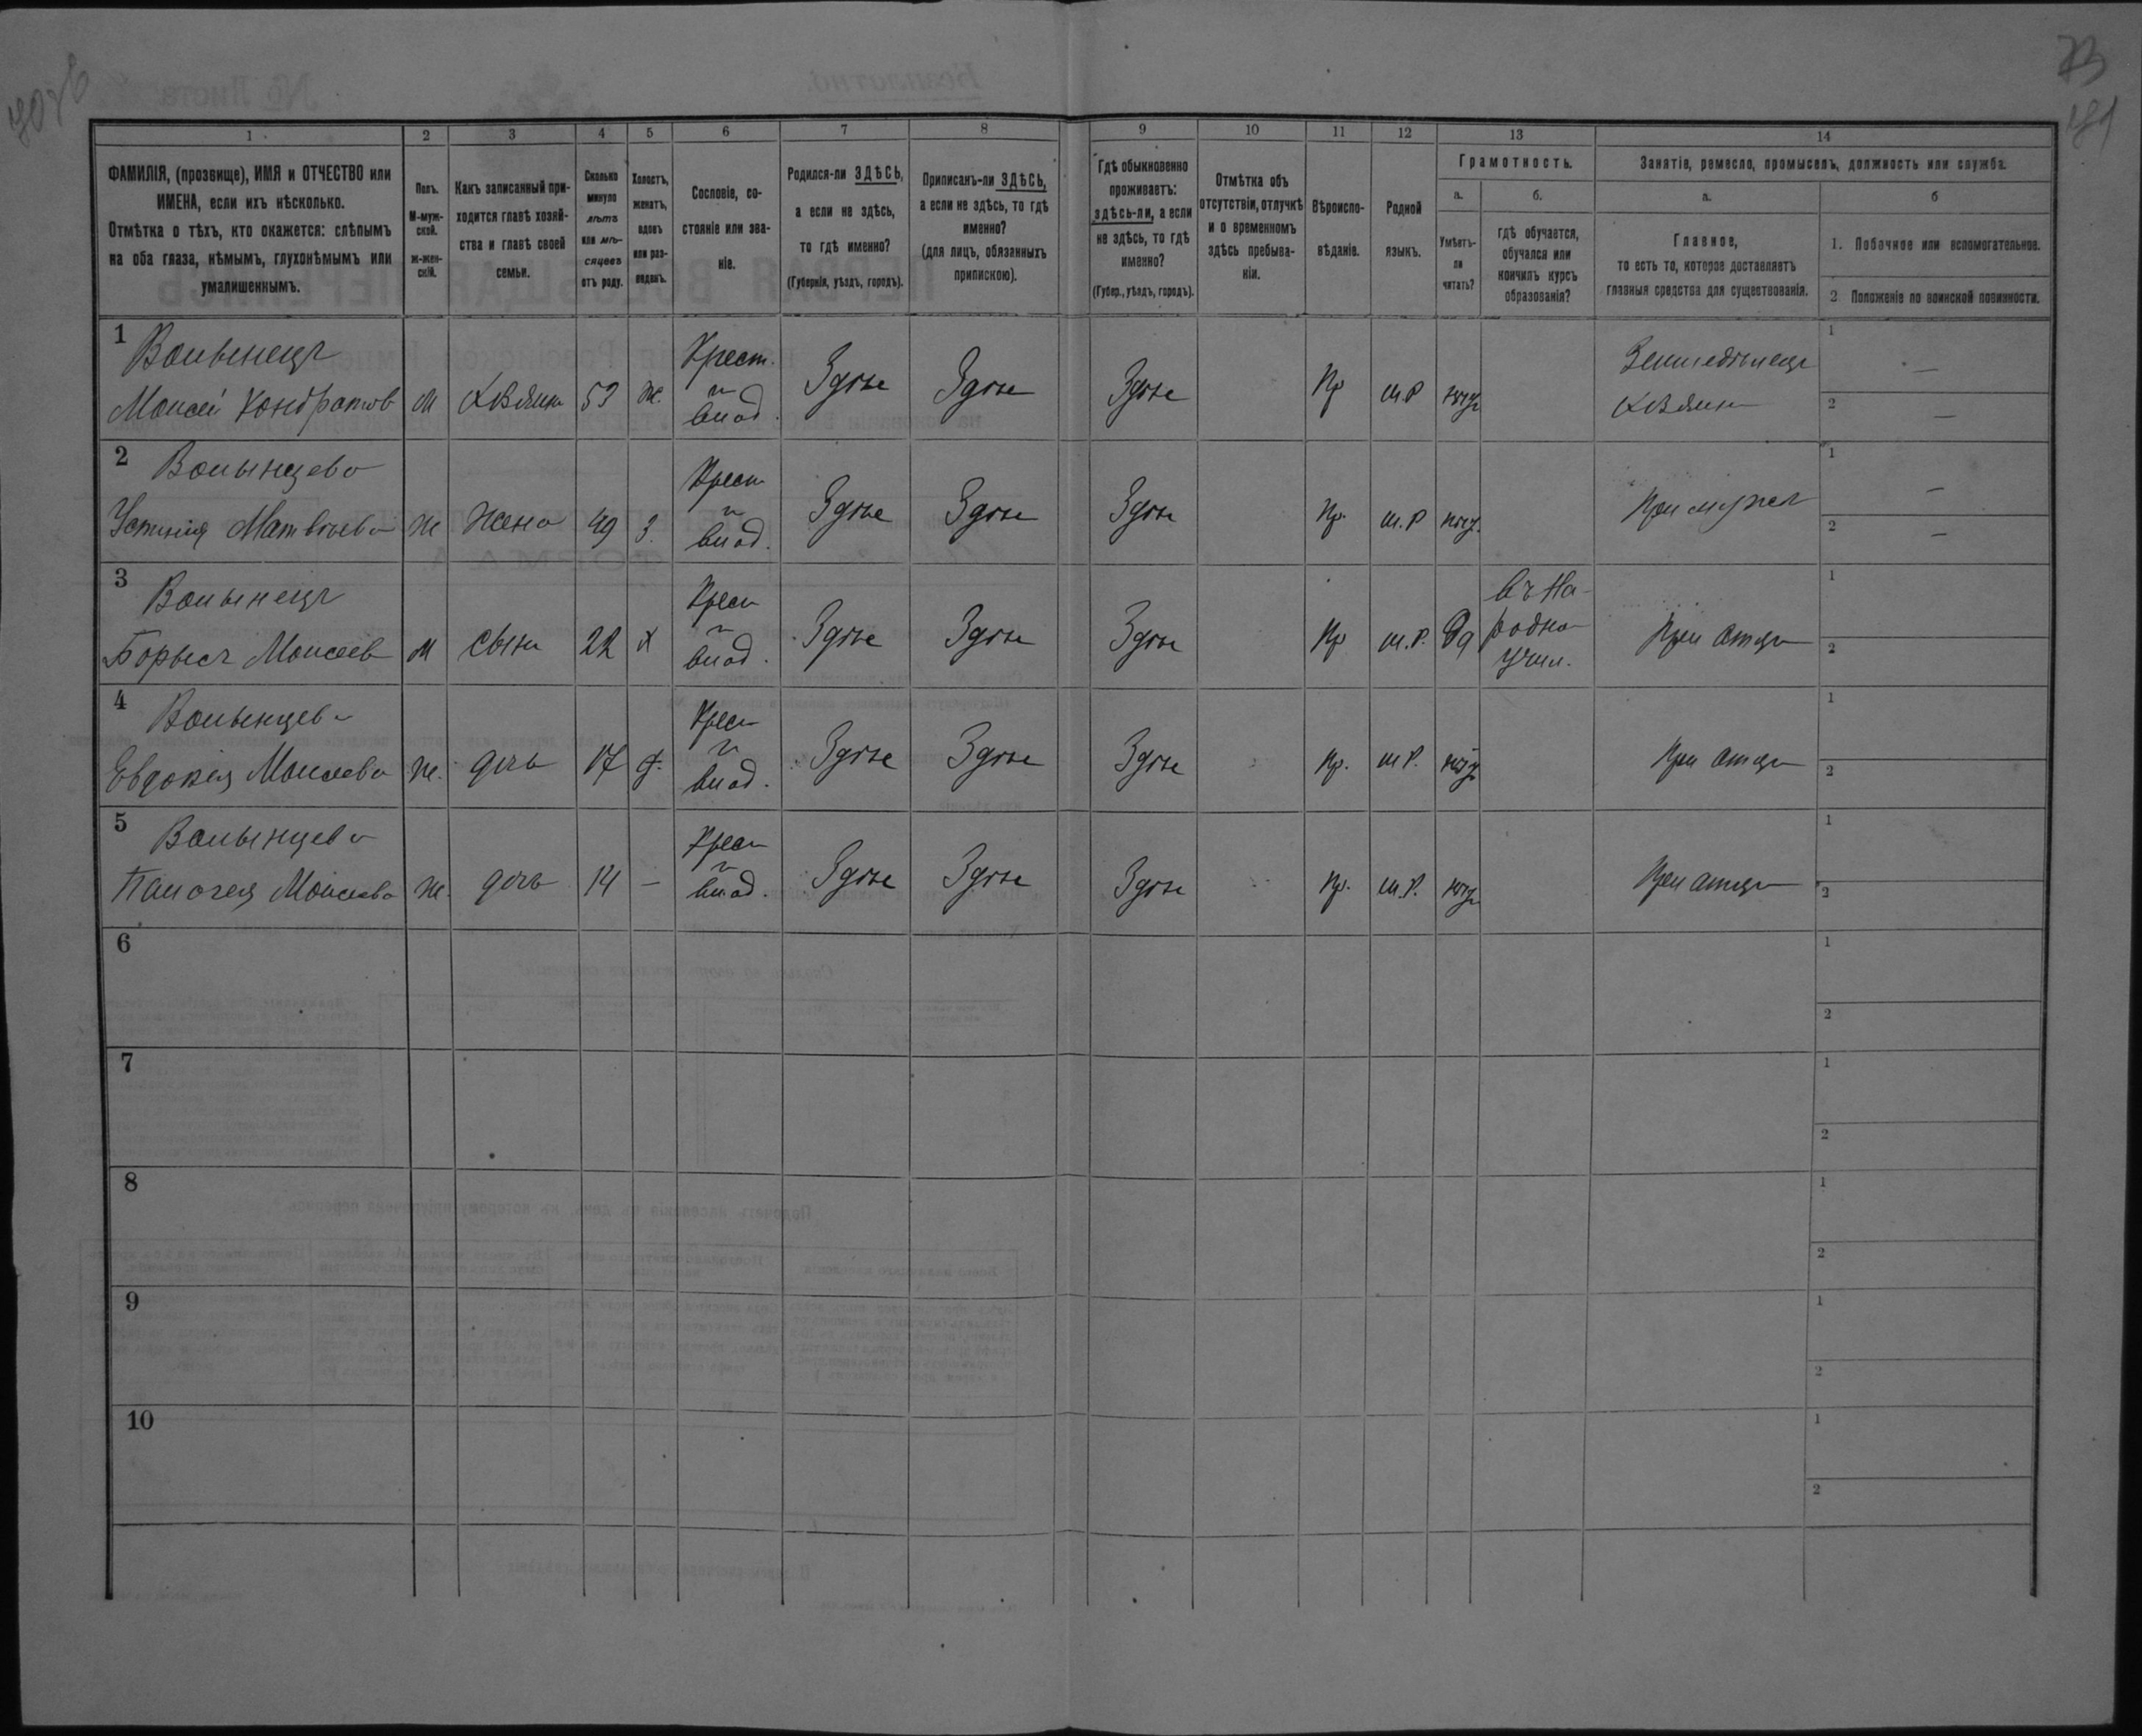 73
181
1 2 3 4 5 6 7 8 9 10 11 12 13 14
ФАМИЛІЯ, (прозвище), ИМЯ и ОТЧЕСТВО или
ИМЕНА, если ихъ нѣсколько.
Отмѣтка о тѣхъ, кто окажется: слѣпымъ
на оба глаза, нѣмымъ, глухонѣмымъ или
умалишеннымъ.
Полъ.
М-муж-
ской.
Ж-жен-
скій.
Какъ записанный при-
ходится главѣ хозяй-
ства и главѣ своей
семьи.
Сколько
минуло
лѣтъ
или мѣ-
сяцевъ
отъ роду.
Холостъ,
женатъ,
вдовъ
или раз-
веденъ.
Сословіе, со-
стояніе или зва-
ніе.
Родился-ли ЗДѢСЬ,
а если не здѣсь,
то гдѣ именно?
(Губернія, уѣздъ, городъ).
Приписанъ-ли ЗДѢСЬ,
а если не здѣсь, то гдѣ
именно?
(для лицъ, обязанныхъ
припискою).
Гдѣ обыкновенно
проживаетъ:
здѣсь-ли, а если
не здѣсь, то гдѣ
именно?
(Губер., уѣздъ, городъ).
Отмѣтка объ
отсутствіи, отлучкѣ
и о временномъ
здѣсь пребыва-
ніи.
Вѣроиспо-
вѣданіе.
Родной
языкъ.
Грамотность.
а.
Умѣетъ-
ли
читать?
б.
гдѣ обучается,
обучался или
кончилъ курсъ
образованія?
Занятіе, ремесло, промыселъ, должность или служба.
а.
Главное,
то есть то, которое доставляетъ
главныя средства для существованія.
б
1. Побочное или вспомогательное.
2. Положеніе по воинской повинности.
1 Волынецъ
Моисей Кондратов М Хозяин 53 ж. Крест. и влад. Здѣсь Здѣсь Здѣсь Пр м.р нѣтъ Земледѣлецъ
хозяин
1 —
2 —
2 Волынцева
Устинія Матвѣева Ж жена 49 з. Крест и влад. Здѣсь Здѣсь Здѣсь Пр. м.р нѣтъ При мужѣ
1 —
2 —
3 Волынецъ
Борысъ Моисеев М сынъ 22 х Крест и влад. Здѣсь Здѣсь Здѣсь Пр м.р. да въ На-
родно
учил.
При отцѣ
1
2
4 Волынцева
Евдокія Моисеева Ж. дочь 17 д. Крест и влад. Здѣсь Здѣсь Здѣсь Пр. м р. нѣтъ При отцѣ
1
2
5 Волынцева
Палогея Моисеева Ж. дочь 14 — Крест и влад. Здѣсь Здѣсь Здѣсь Пр. м.р. нѣтъ При отцѣ
1
2
6
1
2
7
1
2
8
1
2
9
1
2
10
1
2